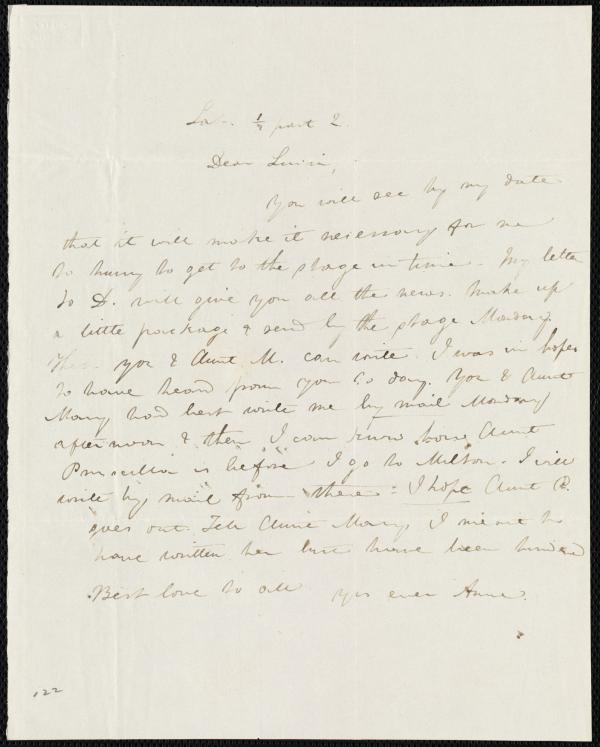 Sat. ½ past 2.
Dear Luisi,
You will see by my date
that it will make it necessary for me
to hurry to get to the stage in time. My letter
to D. will give you all the news. Make up
a little package & send by the stage Monday.
Then you & Aunt M. can write. I was in hopes
to have heard from you to day. You & Aunt
Mary had best write me by mail Monday
afternoon & then I can know how Aunt
Priscilla is before I go to Milton. I will
write by mail from there. I hope Aunt P.
goes out. Tell Aunt Mary I meant to
have written her but have been
Best love to all yrs ever Anne.
122